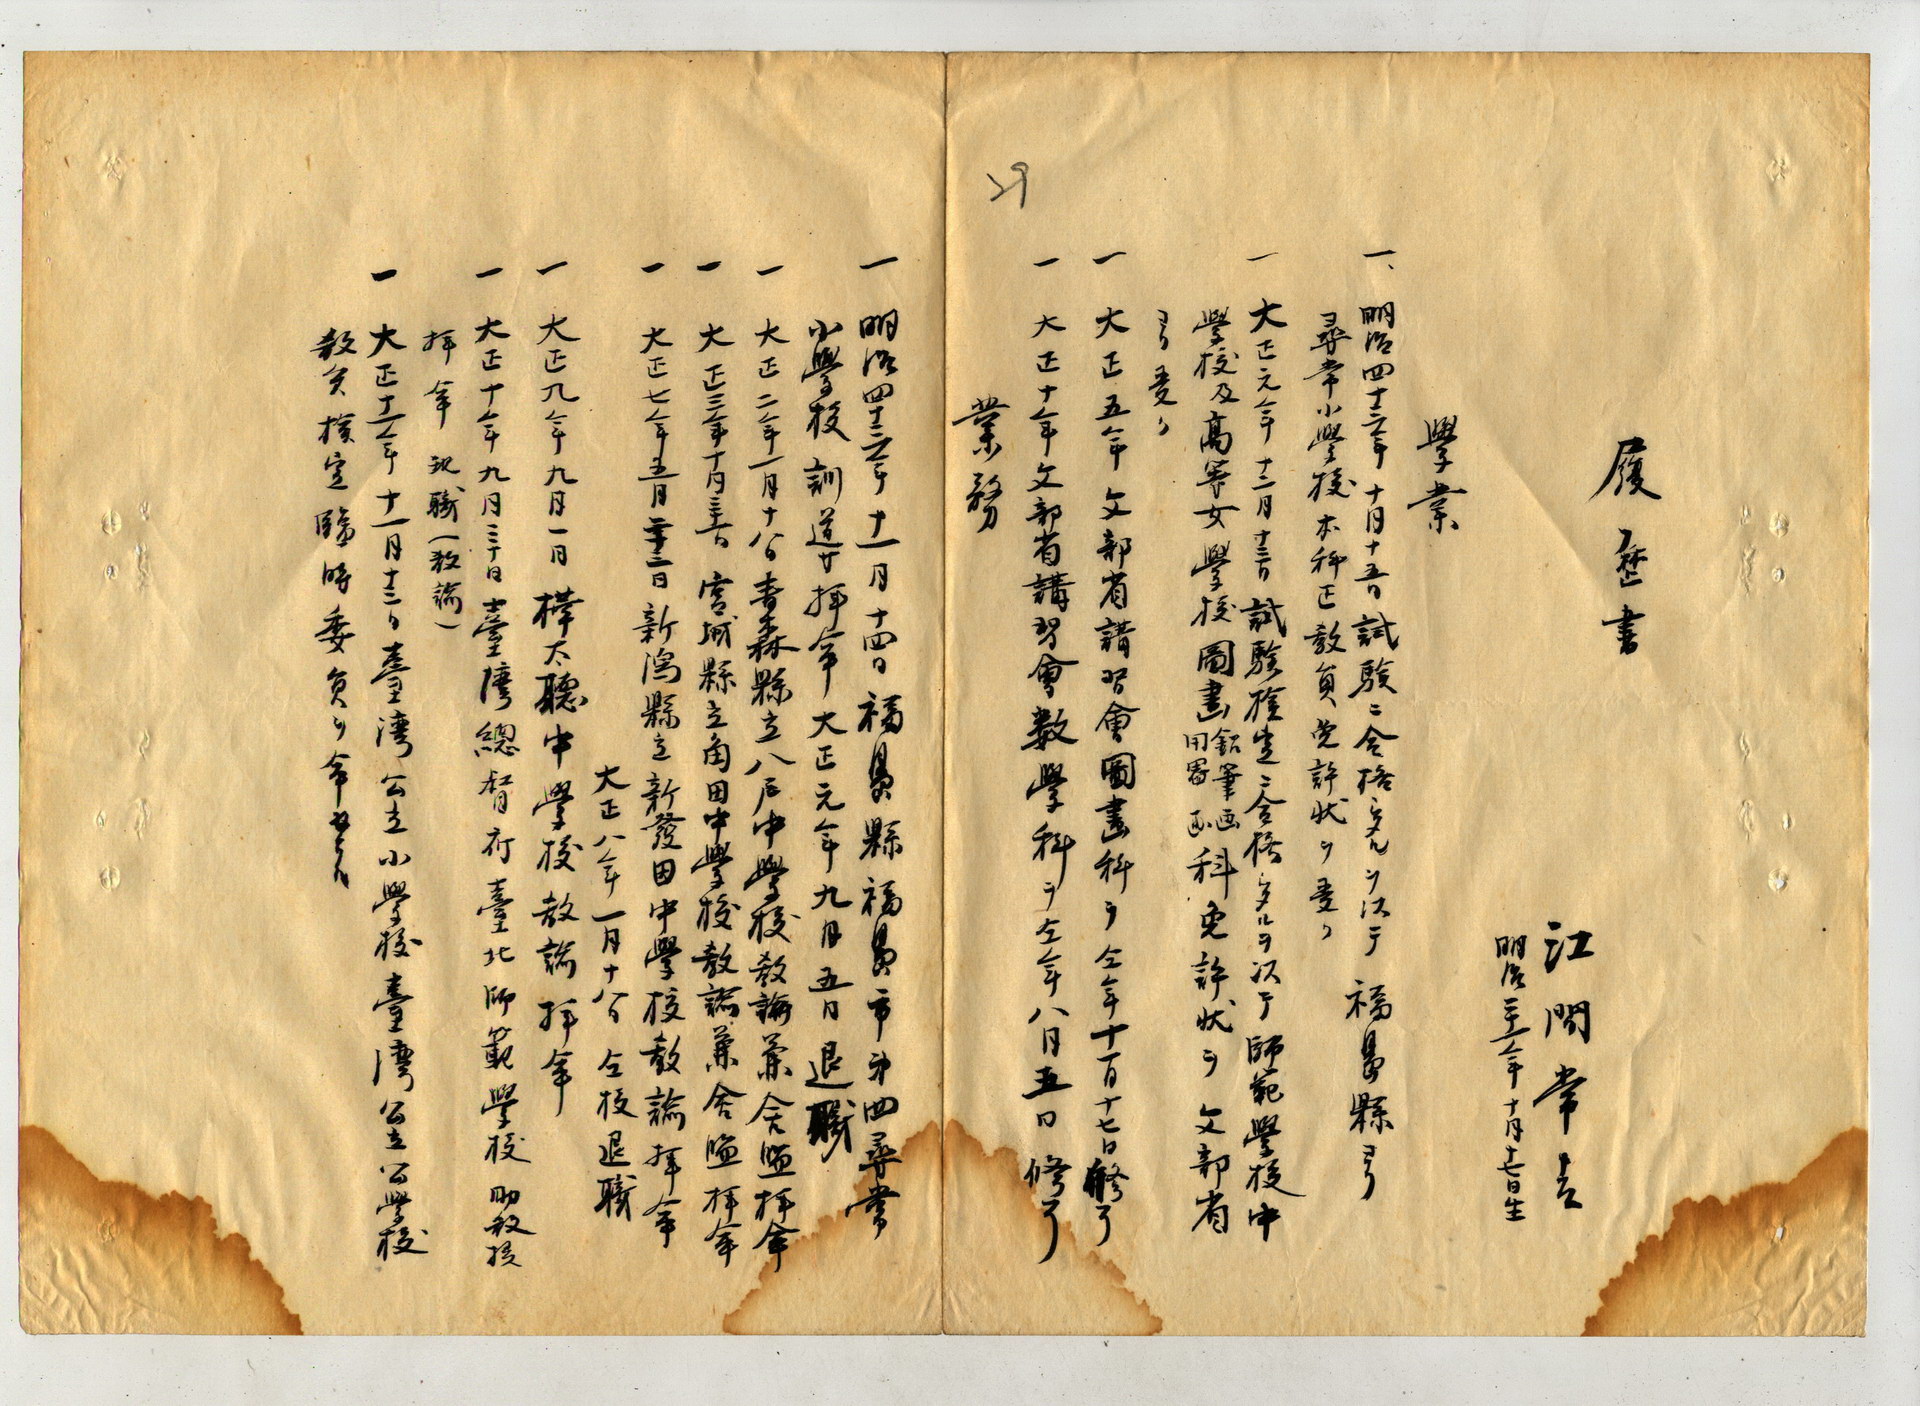 履歴書
江間常吉
明治二十一年十月十七日生
學業
一、明治四十二年十月十五日試験ニ合格シタルヲ以テ福島縣ヨリ
尋常小學校本科正教員免許状ヲ受ク
一 大正元年十二月十三日試験検定ニ合格シタルヲ以テ師範學校中
學校及高等女學校圖畫鉛筆画用器画科免許状ヲ文部省
ヨリ受ク
一 大正五年文部省講習會圖畫科ヲ仝年十一月十七日修了
一 大正十年文部省講習會數學科ヲ仝年八月五日修了
業務
一 明治四十二年十一月十四日福島縣福島市第四尋常
小學校訓導拜命大正元年九月五日退職
一 大正二年一月十八日青森縣立八戸中學校教諭兼舍監拜命
一 大正三年十月三十一日宮城縣立角田中學校教諭兼舍監拜命
一 大正七年五月二十三日新潟縣立新發田中學校教諭拜命
大正八年一月十八日仝校退職
一 大正九年九月一日樺太廳中學校教諭拜命
一 大正十年九月三十日臺灣總督府臺北師範學校助教授
拜命現職(教諭)
一 大正十一年十一月十三日臺灣公立小學校臺灣公立公學校
教員檢定臨時委員ヲ命セラル
29